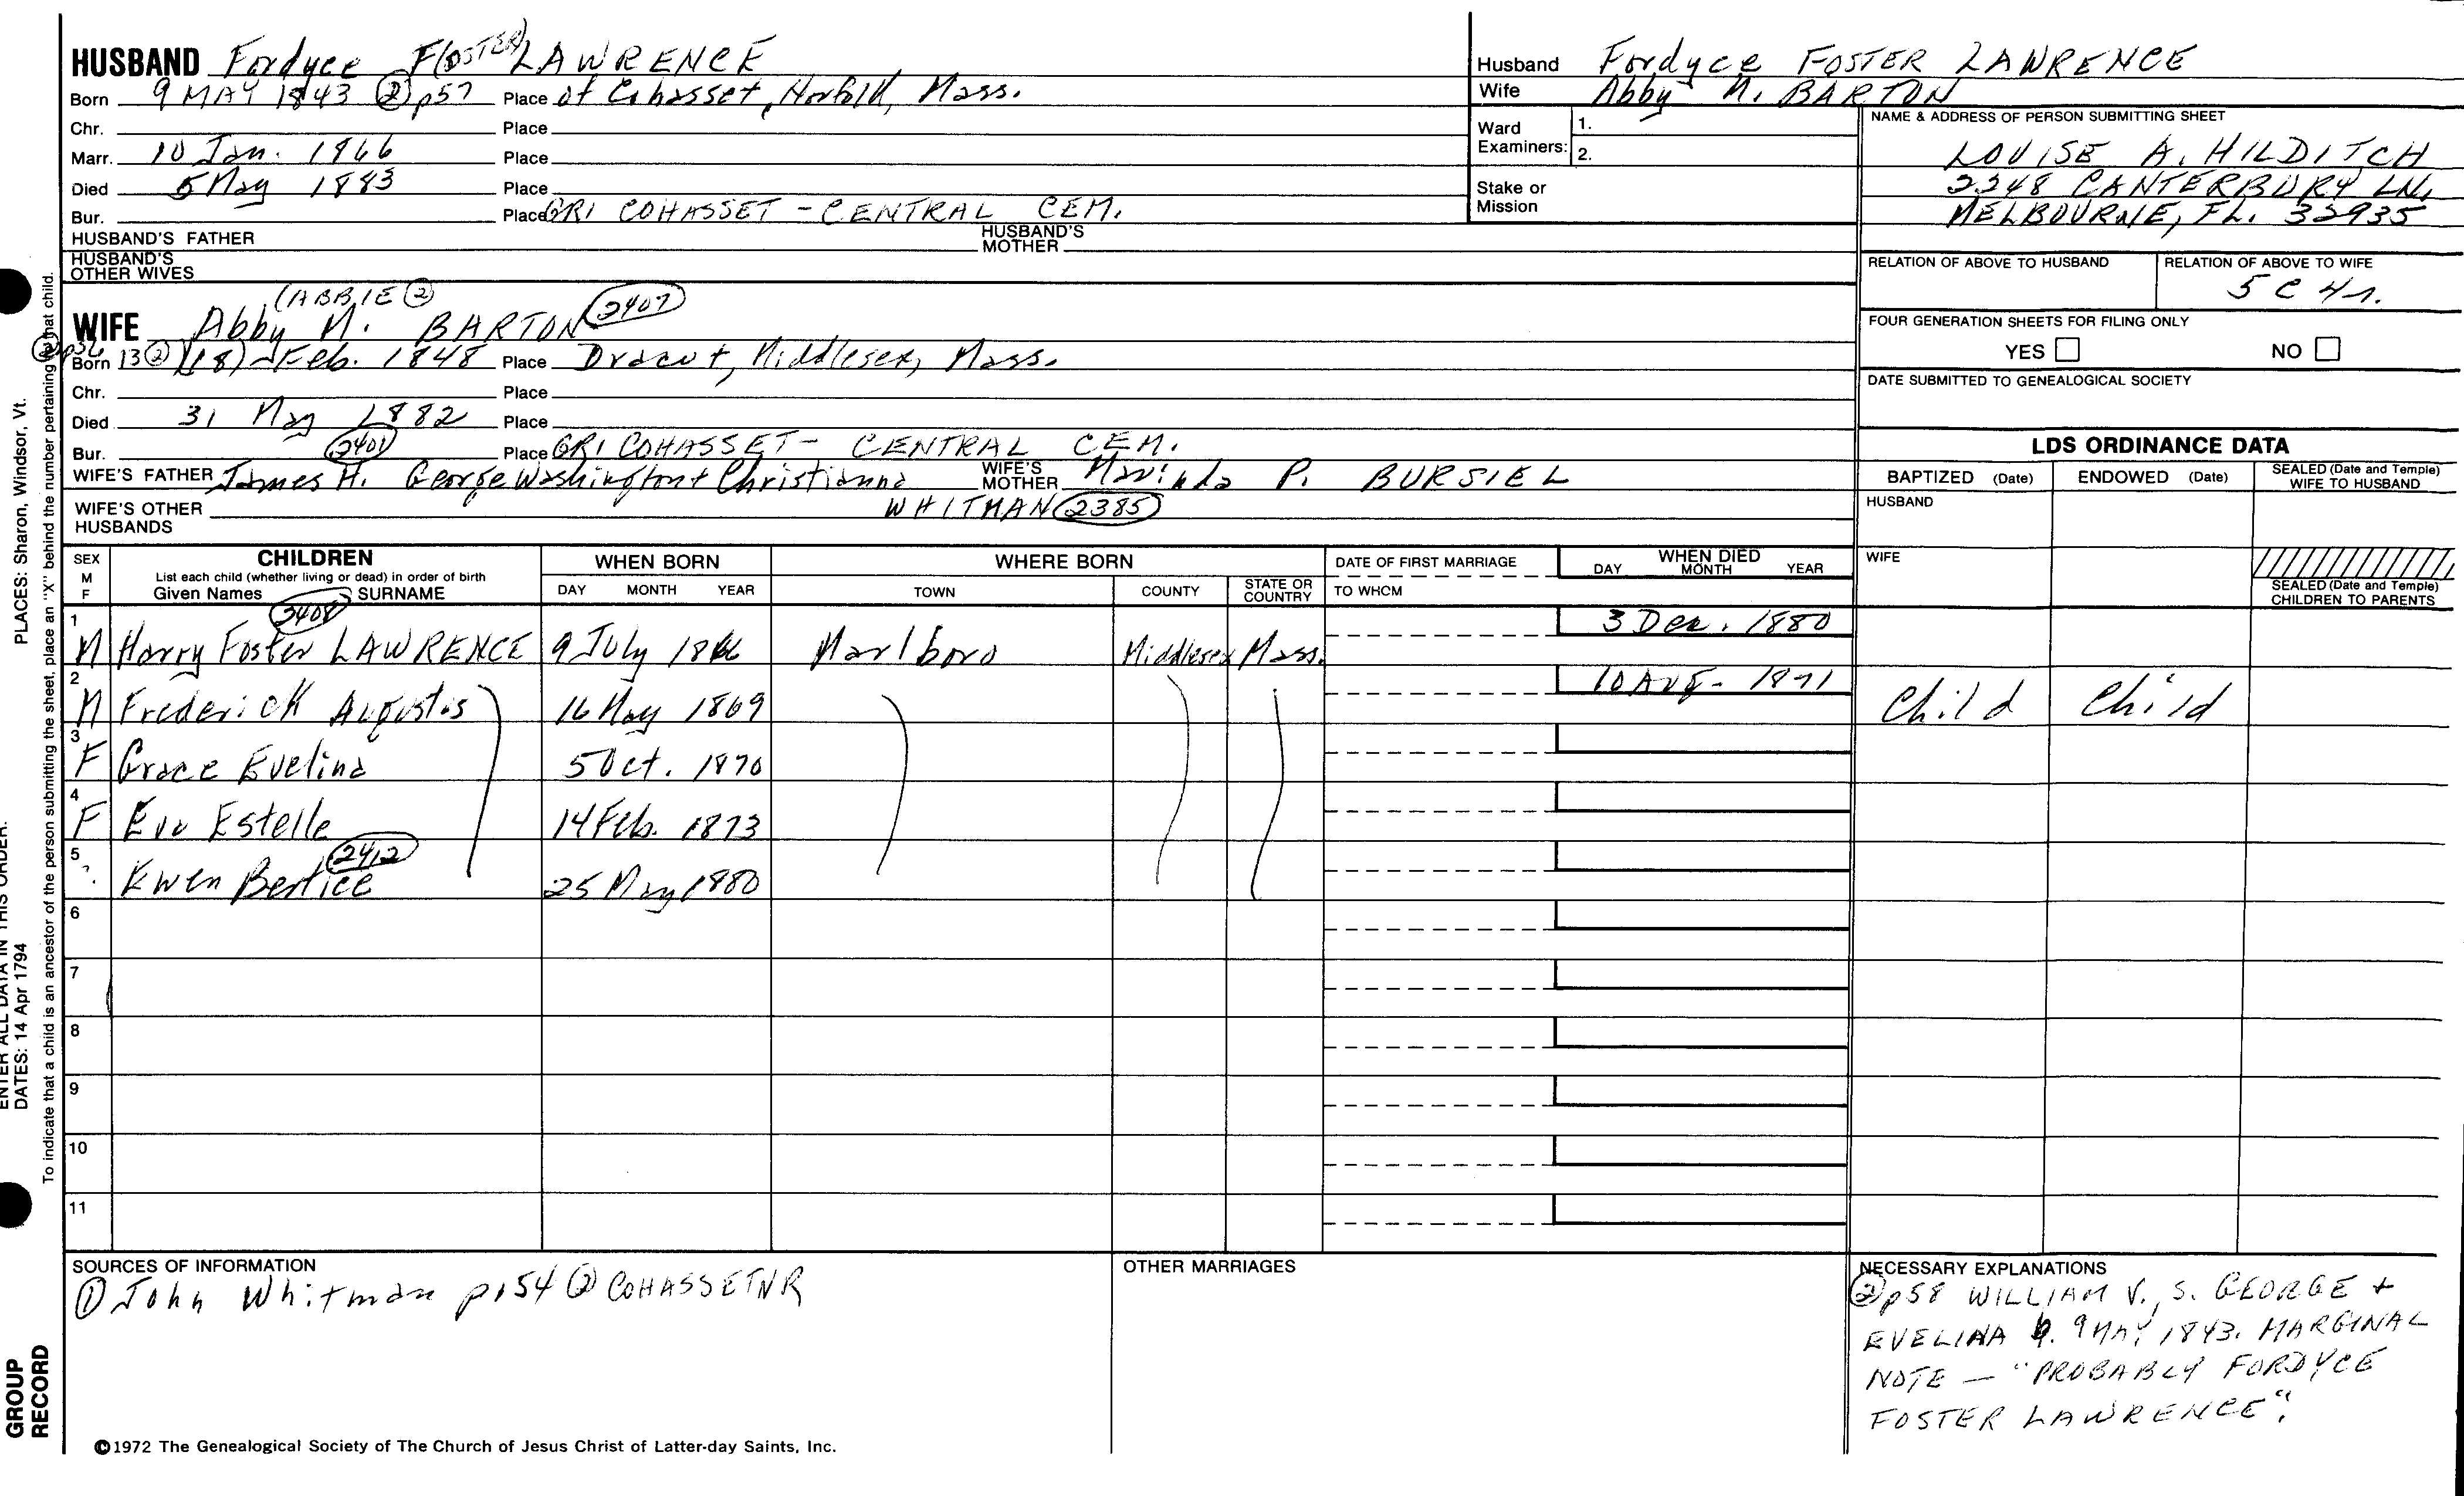 HUSBAND Fordyce F(OSTER) LAWRENCE
Born 9 MAY 1843 ② p57 Place of Cohasset, Norfolk, Mass.
Chr. Place
Marr. 10 Jan. 1866 Place
Died 5 May 1883 Place
Bur. Place GRI COHASSET - CENTRAL CEM.
HUSBAND'S FATHER HUSBAND'S MOTHER
HUSBAND'S OTHER WIVES
(ABBIE ②
WIFE Abby M. BARTON 2407
② p56 Born 13 ② (18) Feb. 1848 Place Dracut, Middlesex, Mass.
Chr. Place
Died 31 May 1882 Place
Bur. Place GRI COHASSET - CENTRAL CEM.
2401
WIFE'S FATHER James H. George Washington + Christianna WIFE'S MOTHER P. BURSIEL
WHITMAN 2385
WIFE'S OTHER HUSBANDS
Husband Fordyce FOSTER LAWRENCE
Wife Abby M. BARTON
Ward Examiners: 1.
2.
Stake or Mission
NAME & ADDRESS OF PERSON SUBMITTING SHEET
LOUISE A. HILDITCH
2248 CANTERBURY LN.
MELBOURNE, FL. 32935
RELATION OF ABOVE TO HUSBAND RELATION OF ABOVE TO WIFE
5 C 4 r.
FOUR GENERATION SHEETS FOR FILING ONLY
YES NO
DATE SUBMITTED TO GENEALOGICAL SOCIETY
LDS ORDINANCE DATA
BAPTIZED (Date) ENDOWED (Date) SEALED (Date and Temple) WIFE TO HUSBAND
HUSBAND
WIFE
SEALED (Date and Temple) CHILDREN TO PARENTS
SEX M F CHILDREN WHEN BORN WHERE BORN DATE OF FIRST MARRIAGE WHEN DIED
List each child (whether living or dead) in order of birth
Given Names SURNAME DAY MONTH YEAR TOWN COUNTY STATE OR COUNTRY TO WHOM DAY MONTH YEAR
2408
1 M Harry Foster LAWRENCE 9 July 1866 Marlboro Middlesex Mass. 3 Dec. 1880
2 M Frederick Augustus 16 May 1869 10 Aug. 1871 Child Child
3 F Grace Evelina 5 Oct. 1870
4 F Eva Estelle 14 Feb. 1873
2412
5 ? Kwen Bertice 25 May 1880
6
7
8
9
10
11
SOURCES OF INFORMATION
① John Whitman p154 ② COHASSET VR
OTHER MARRIAGES
NECESSARY EXPLANATIONS
② p58 WILLIAM V., S. GEORGE +
EVELINA b. 9 MAY 1843. MARGINAL
NOTE — "PROBABLY FORDYCE
FOSTER LAWRENCE".
©1972 The Genealogical Society of The Church of Jesus Christ of Latter-day Saints, Inc.
ENTER ALL DATA IN THIS ORDER:
PLACES: Sharon, Windsor, Vt.
DATES: 14 Apr 1794
To indicate that a child is an ancestor of the person submitting the sheet, place an "X" behind the number pertaining to that child.
GROUP
RECORD